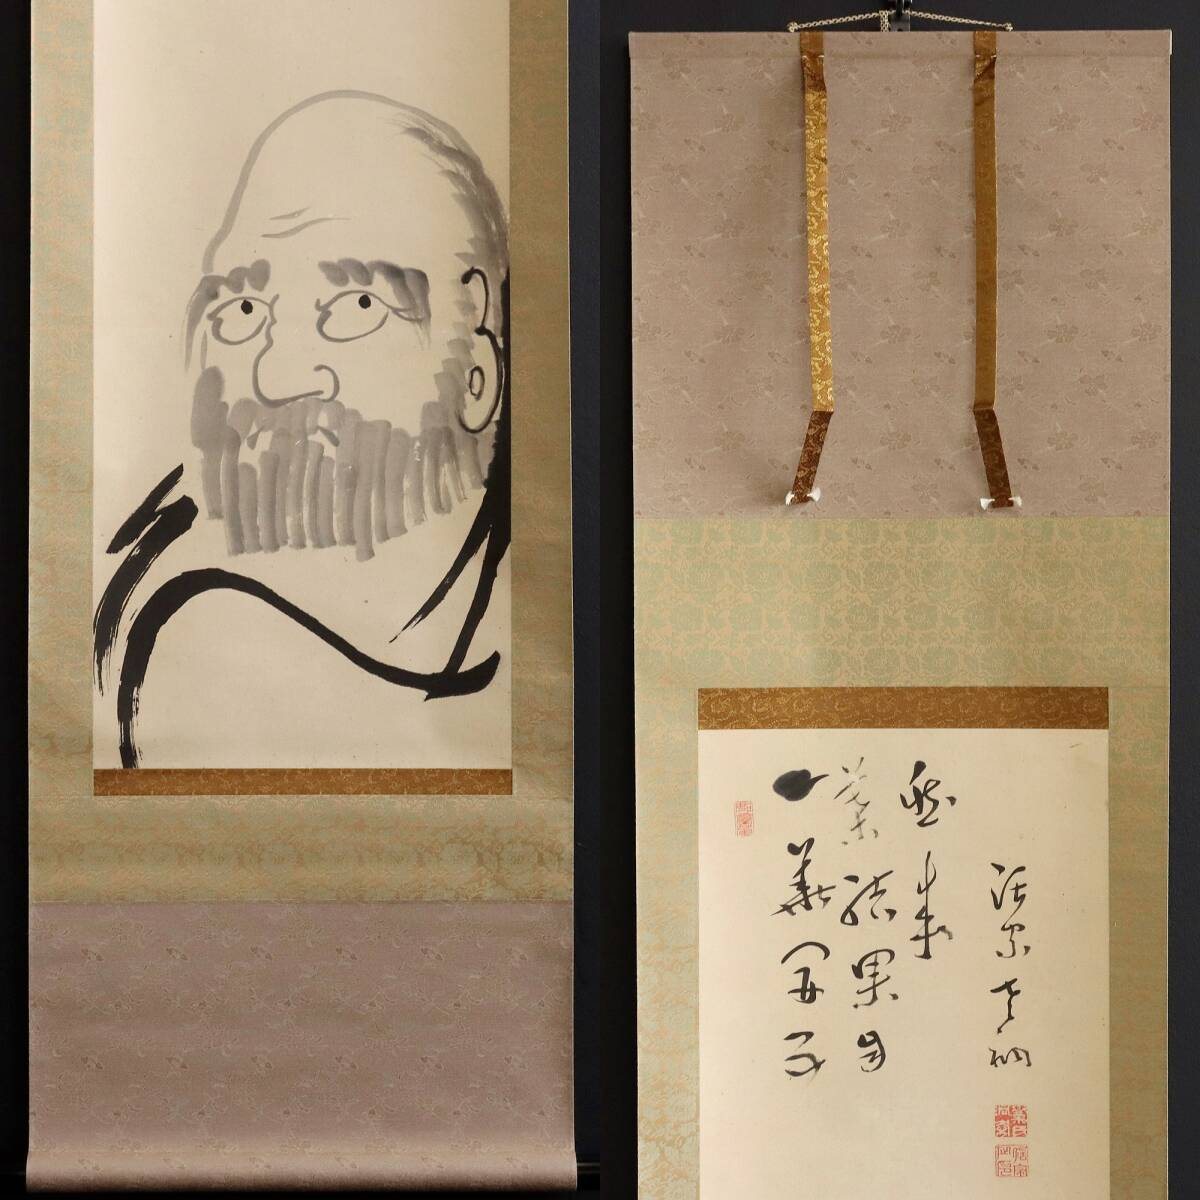 一華開五
葉結果自
然成
老衲